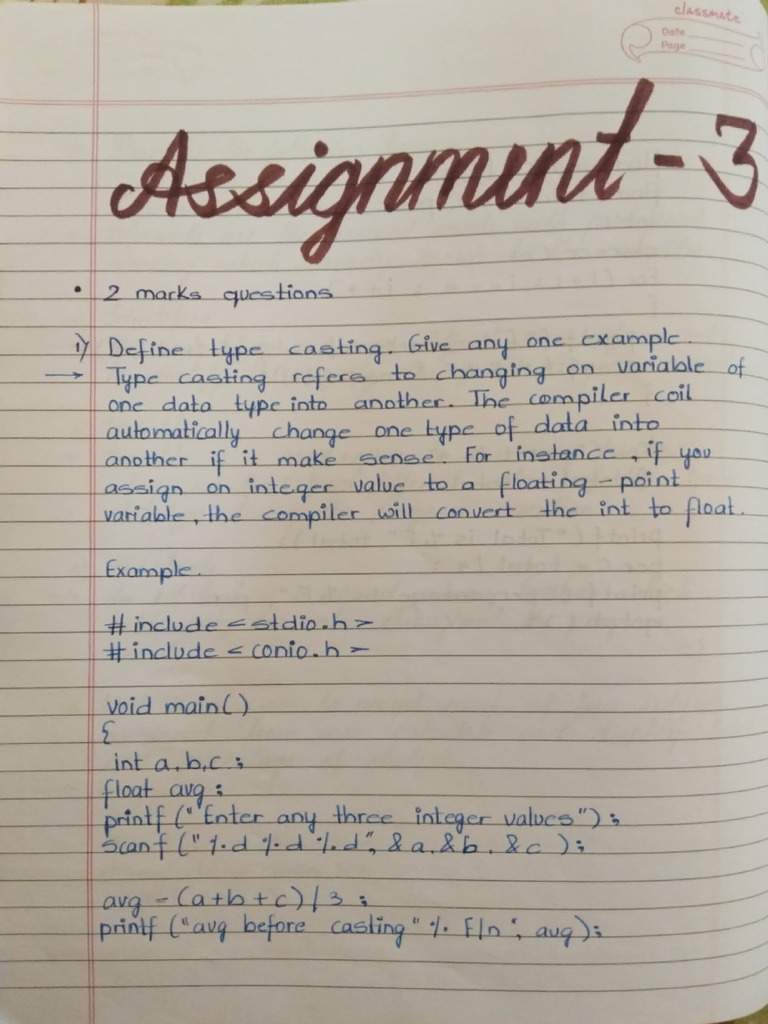 classmate
Date
Page
Assignment - 3
• 2 marks questions
1) Define type casting. Give any one example.
→ Type casting refers to changing on variable of
one data type into another. The compiler coil
automatically change one type of data into
another if it make sense. For instance, if you
assign on integer value to a floating - point
variable, the compiler will convert the int to float.
Example.
# include < stdio.h >
# include < conio.h >
void main()
{
int a,b,c ;
float avg ;
printf (" Enter any three integer values") ;
scanf (" %d %d %d", &a, &b, &c );
avg = (a+b+c) / 3 ;
printf ("avg before casting" % F/n", avg);